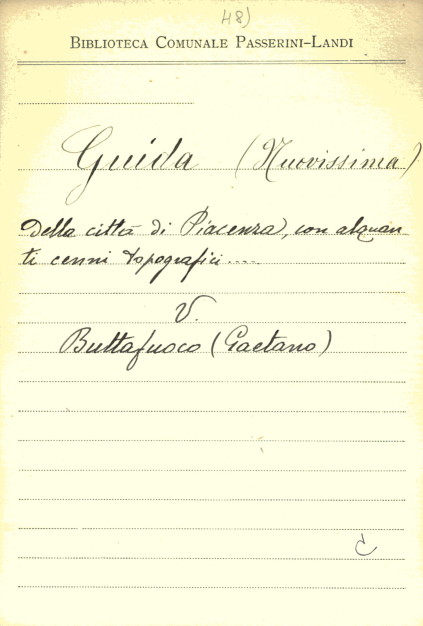 48)
BIBLIOTECA COMUNALE PASSERINI-LANDI
Guida (Nuovissima)
della città di Piacenza, con alquan
ti cenni topografici....
V.
Buttafuoco (Gaetano)
C